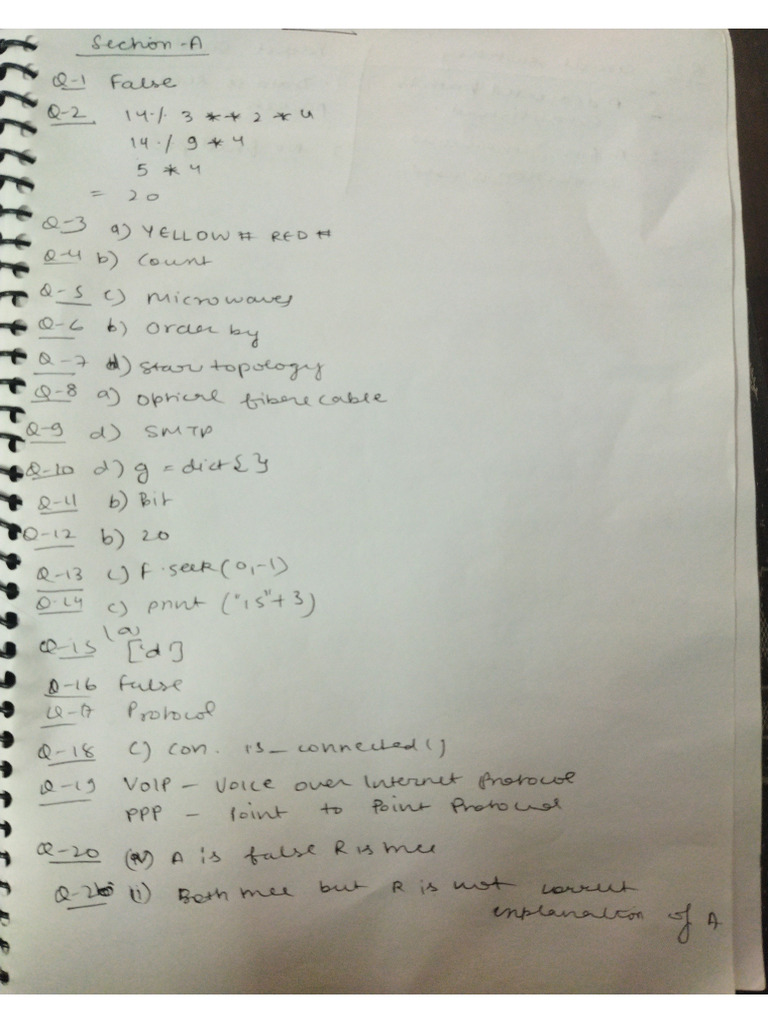 Section-A
Q-1 False
Q-2 14% 3 ** 2 * 4
14 % 9 * 4
5 * 4
= 20
Q-3 a) YELLOW # RED #
Q-4 b) Count
Q-5 c) Microwaves
Q-6 b) Order by
Q-7 d) Star topology
Q-8 a) Optical fibere cable
Q-9 d) SMTP
Q-10 d) g = dict{ }
Q-11 b) Bit
Q-12 b) 20
Q-13 c) f.seek(0,-1)
Q-14 c) print ("15"+3)
Q-15 (a) ['d']
Q-16 False
Q-17 Protocol
Q-18 c) con. is_connected()
Q-19 VOIP - Voice over Internet Protocol
PPP - Point to Point Protocol
Q-20 A is false R is true
Both true but R is not correct
explanation of A